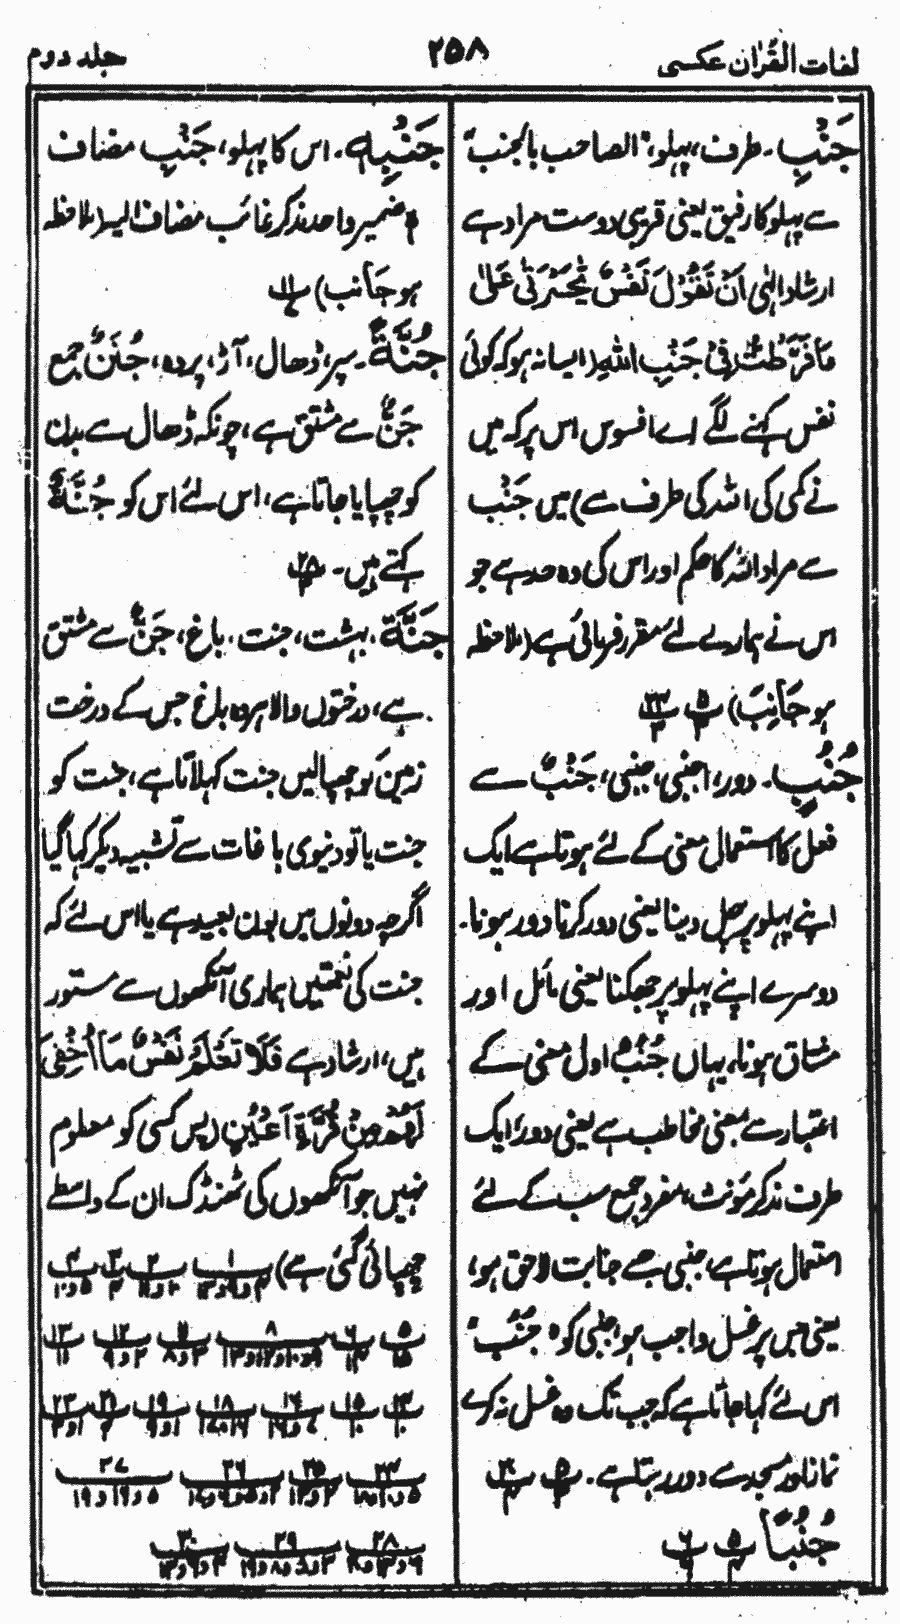 لغات القرآن عکسی
۲۵۸
جلد دوم
جَنْبِ۔ طرف، پہلو، "الصاحب بالجنب"
سے پہلو کا رفیق یعنی قریبی دوست مراد ہے
ارشاد الٰہی اَنْ تَقُوْلَ نَفْسٌ یّٰحَسْرَتٰی عَلٰی
مَا فَرَّطْتُّ فِیْ جَنْبِ اللّٰهِ (ایسا نہ ہو کہ کوئی
نفس کہنے لگے اے افسوس اس پر کہ میں
نے کمی کی اللہ کی طرف سے) میں جَنْب
سے مراد اللہ کا حکم اور اس کی وہ حد ہے جو
اس نے ہمارے لئے مقرر فرمائی ہے (ملاحظہ
ہو جَانِب)
جُنُبٍ۔ دور، اجنبی، جنبی، جَنْبٌ سے
فعل کا استعمال معنی کے لئے ہوتا ہے ایک
اپنے پہلو پر چل دینا یعنی دور کرنا دور ہونا۔
دوسرے اپنے پہلو پر جھکنا یعنی مائل اور
مشتاق ہونا، یہاں جُنُبٌ اول معنی کے
اعتبار سے بمعنی مخاطب ہے یعنی دور، ایک
طرف مذکر مؤنث، مفرد جمع سب کے لئے
استعمال ہوتا ہے، جنبی جسے جنابت لاحق ہو،
یعنی جس پر غسل واجب ہو، جنبی کو "جُنُب"
اس لئے کہا جاتا ہے کہ جب تک وہ غسل نہ کرے
نماز اور مسجد سے دور رہتا ہے۔
جُنُبًا
جَنْبِهٖ۔ اس کا پہلو، جَنْبِ مضاف
ہ ضمیر واحد مذکر غائب مضاف الیہ (ملاحظہ
ہو جَانب)
جُنَّةً۔ سپر، ڈھال، آڑ، پردہ، جُنَنٌ جمع
جَنٌّ سے مشتق ہے، چونکہ ڈھال سے بدن
کو چھپایا جاتا ہے، اس لئے اس کو جُنَّةٌ
کہتے ہیں۔ ۲۸
جَنَّة۔ بہشت، جنت، باغ، جَنٌّ سے مشتق
ہے، درختوں والا ہر وہ باغ جس کے درخت
زمین کو چھپالیں جنت کہلاتا ہے، جنت کو
جنت یا تو دنیوی باغات سے تشبیہ دیکر کہا گیا
اگرچہ دونوں میں بون بعید ہے یا اس لئے کہ
جنت کی نعمتیں ہماری آنکھوں سے مستور
ہیں، ارشاد ہے فَلَا تَعْلَمُ نَفْسٌ مَّا اُخْفِیَ
لَهُمْ مِنْ قُرَّةِ اَعْیُنٍ (پس کسی کو معلوم
نہیں جو آنکھوں کی ٹھنڈک ان کے واسطے
چھپائی گئی ہے)